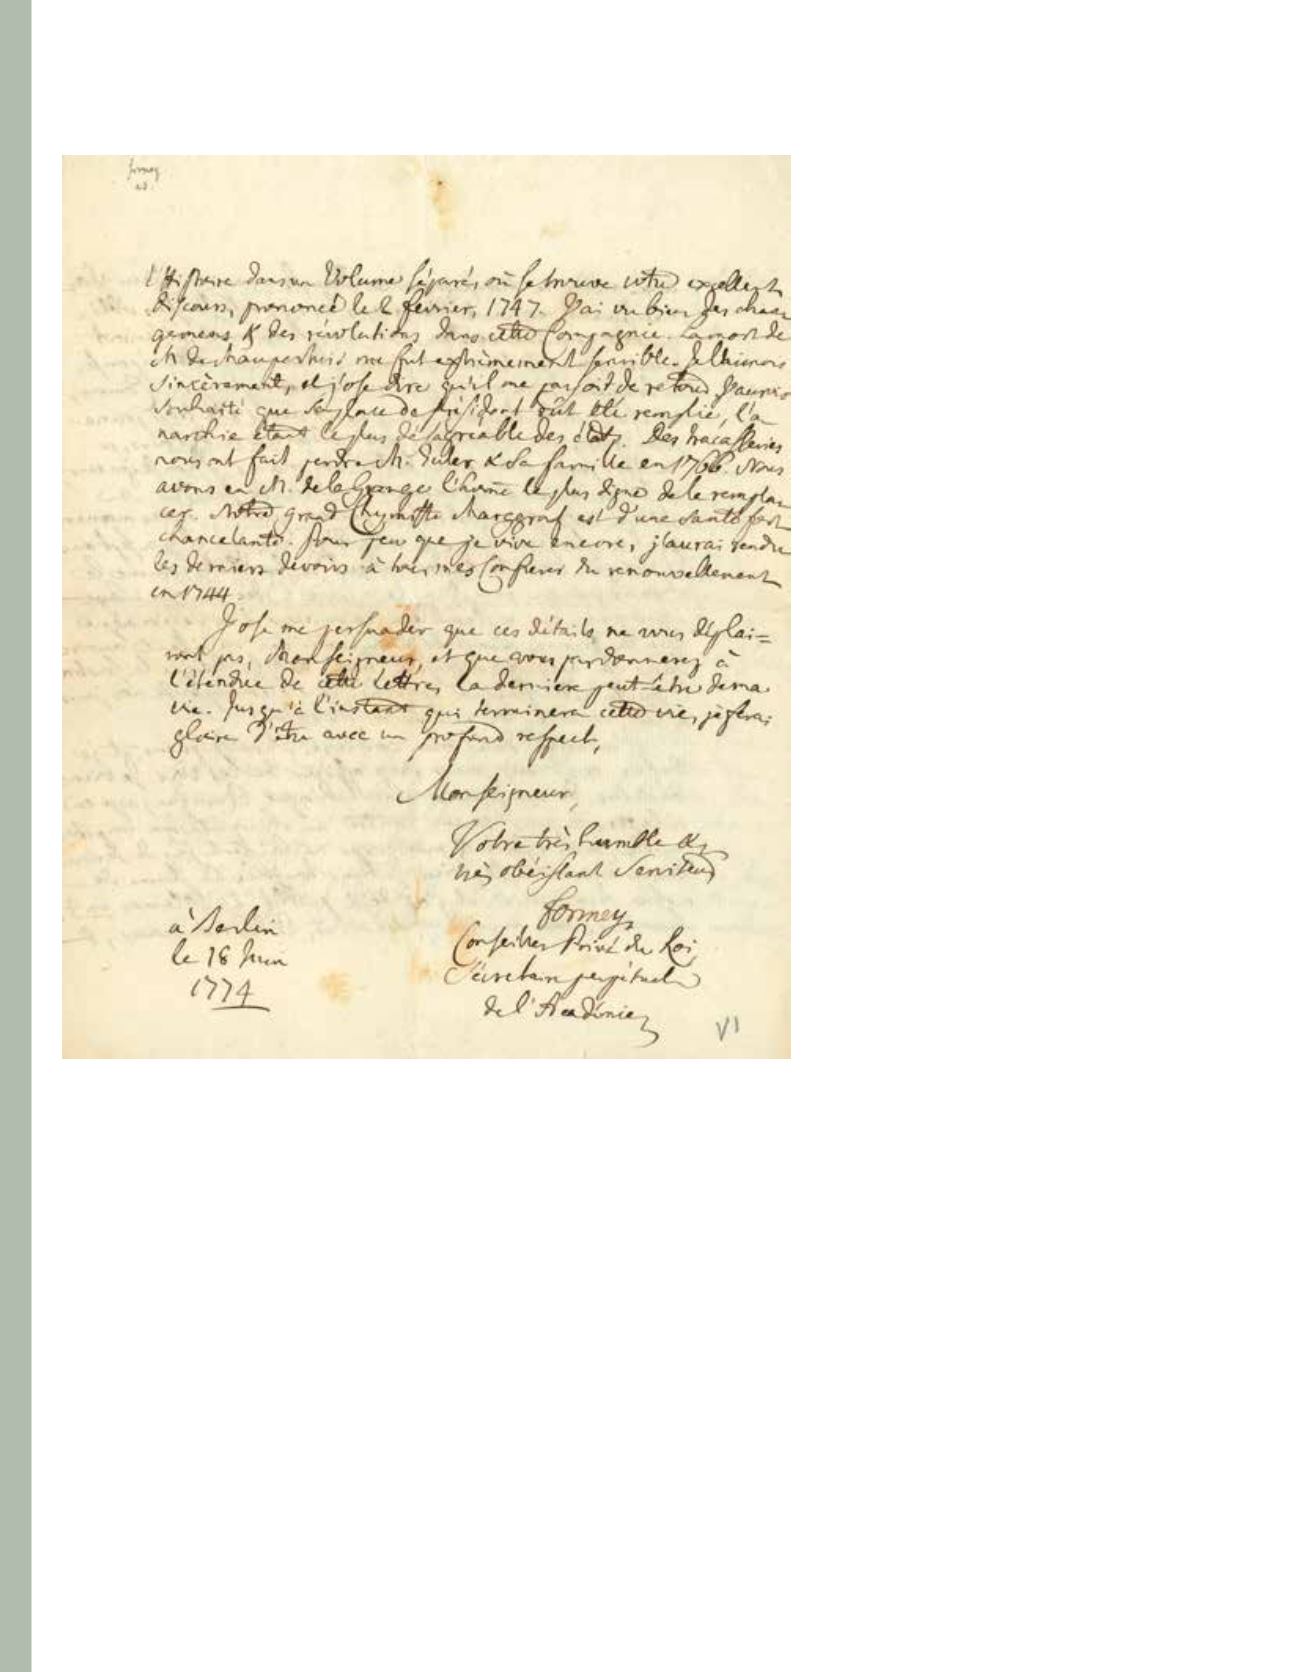 Formey
l'Histoire dans un Volume séparé, où se trouve votre excellent
Discours, prononcé le 2 février, 1747. J'ai vu bien des chan
gemens & des révolutions dans cette Compagnie. La mort de
M. de Maupertuis me fut extrèmement sensible. Je l'aimois
sincèrement, et j'ose dire qu'il me païoit de retour. J'aurois
souhaité que sa place de Président eût été remplie, l'a
narchie étant le plus désagréable des états. Des tracasseries
nous ont fait perdre M. Euler & sa famille en 1766. Nous
avons en M. de la Grange l'home le plus digne de le rempla
cer. Notre grand Chymiste Marggraf est d'une santé fort
chancelante. Pour peu que je vive encore, j'aurai rendu
les derniers devoirs à tous mes Confreres du renouvellement
en 1744.
J'ose me persuader que ces détails ne vous déplai=
ront pas, Monseigneur, et que vous pardonnerez à
l'étendue de cette Lettre, la derniere peut-être de ma
vie. Jusqu'à l'instant qui terminera cette vie, je ferai
gloire d'être avec un profond respect,
Monseigneur,
Votre très humble &
très obéissant Serviteur
Formey
Conseiller Privé du Roi,
Sécretaire perpétuel
de l'Académie
à Berlin
le 18 Juin
1774
VI